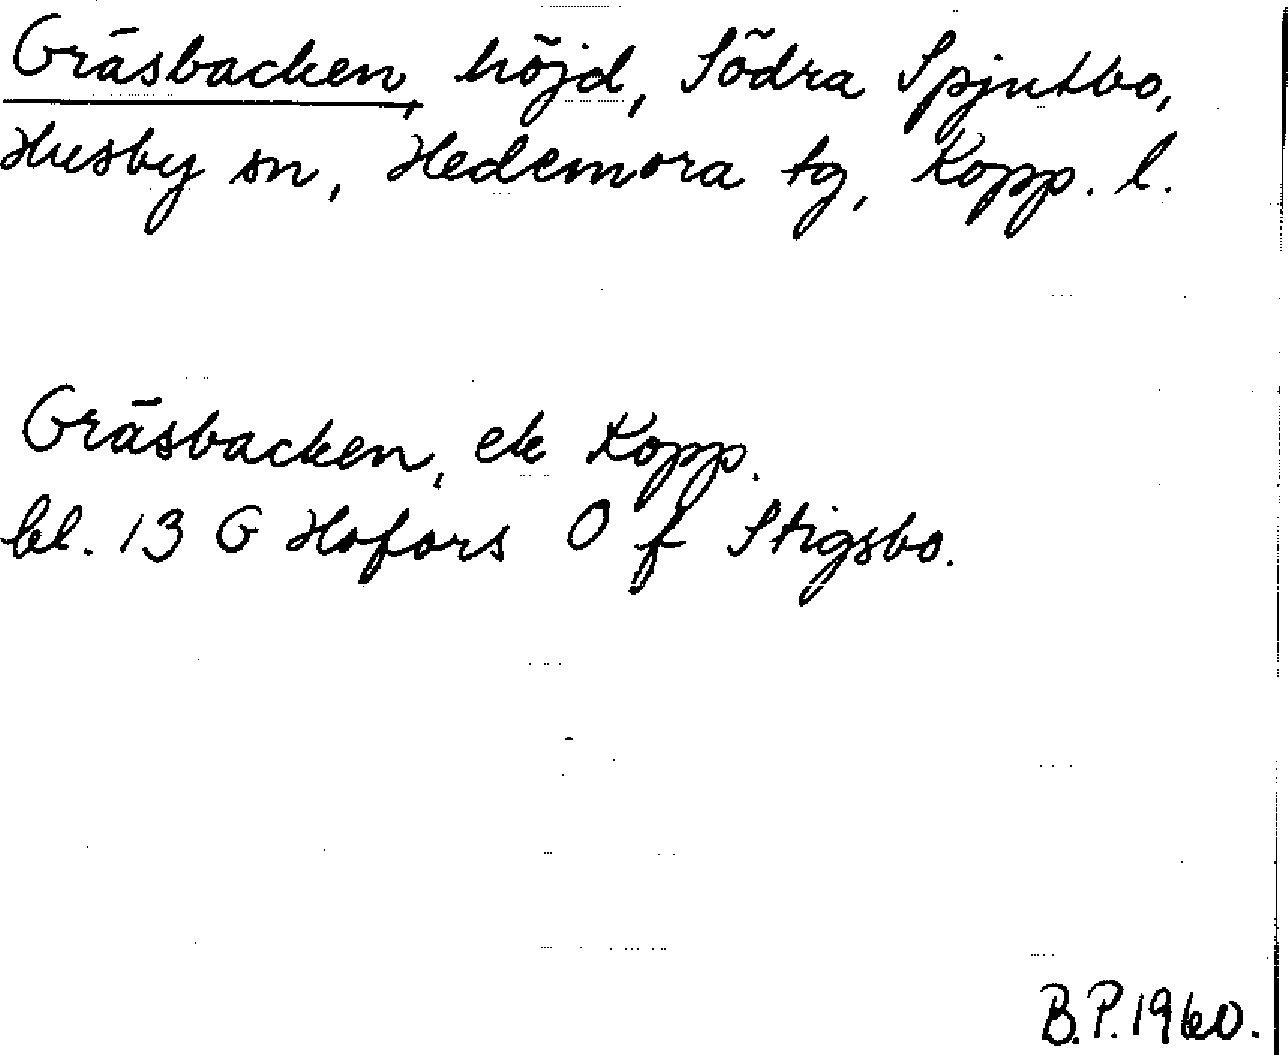 Gräsbacken, höjd, Södra Spjutbo,
Husby sn, Hedemora tg, Kopp. l.
Gräsbacken, ek Kopp.
bl. 13 G Hofors O f Stigsbo.
B.P. 1960.